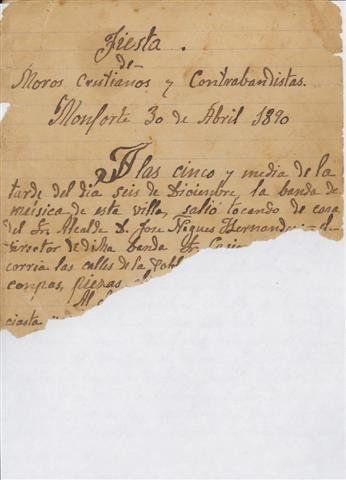 Fiesta.
de
Moros Cristianos y Contrabandistas.
Monforte 30 de Abril 1890
A las cinco y media de la
tarde del dia seis de Diciembre, la banda de
música de esta villa, salió tocando de casa
del Sr. Alcalde D. Jose
director de dicha banda
corria las calles de la
compas, piezas
Al